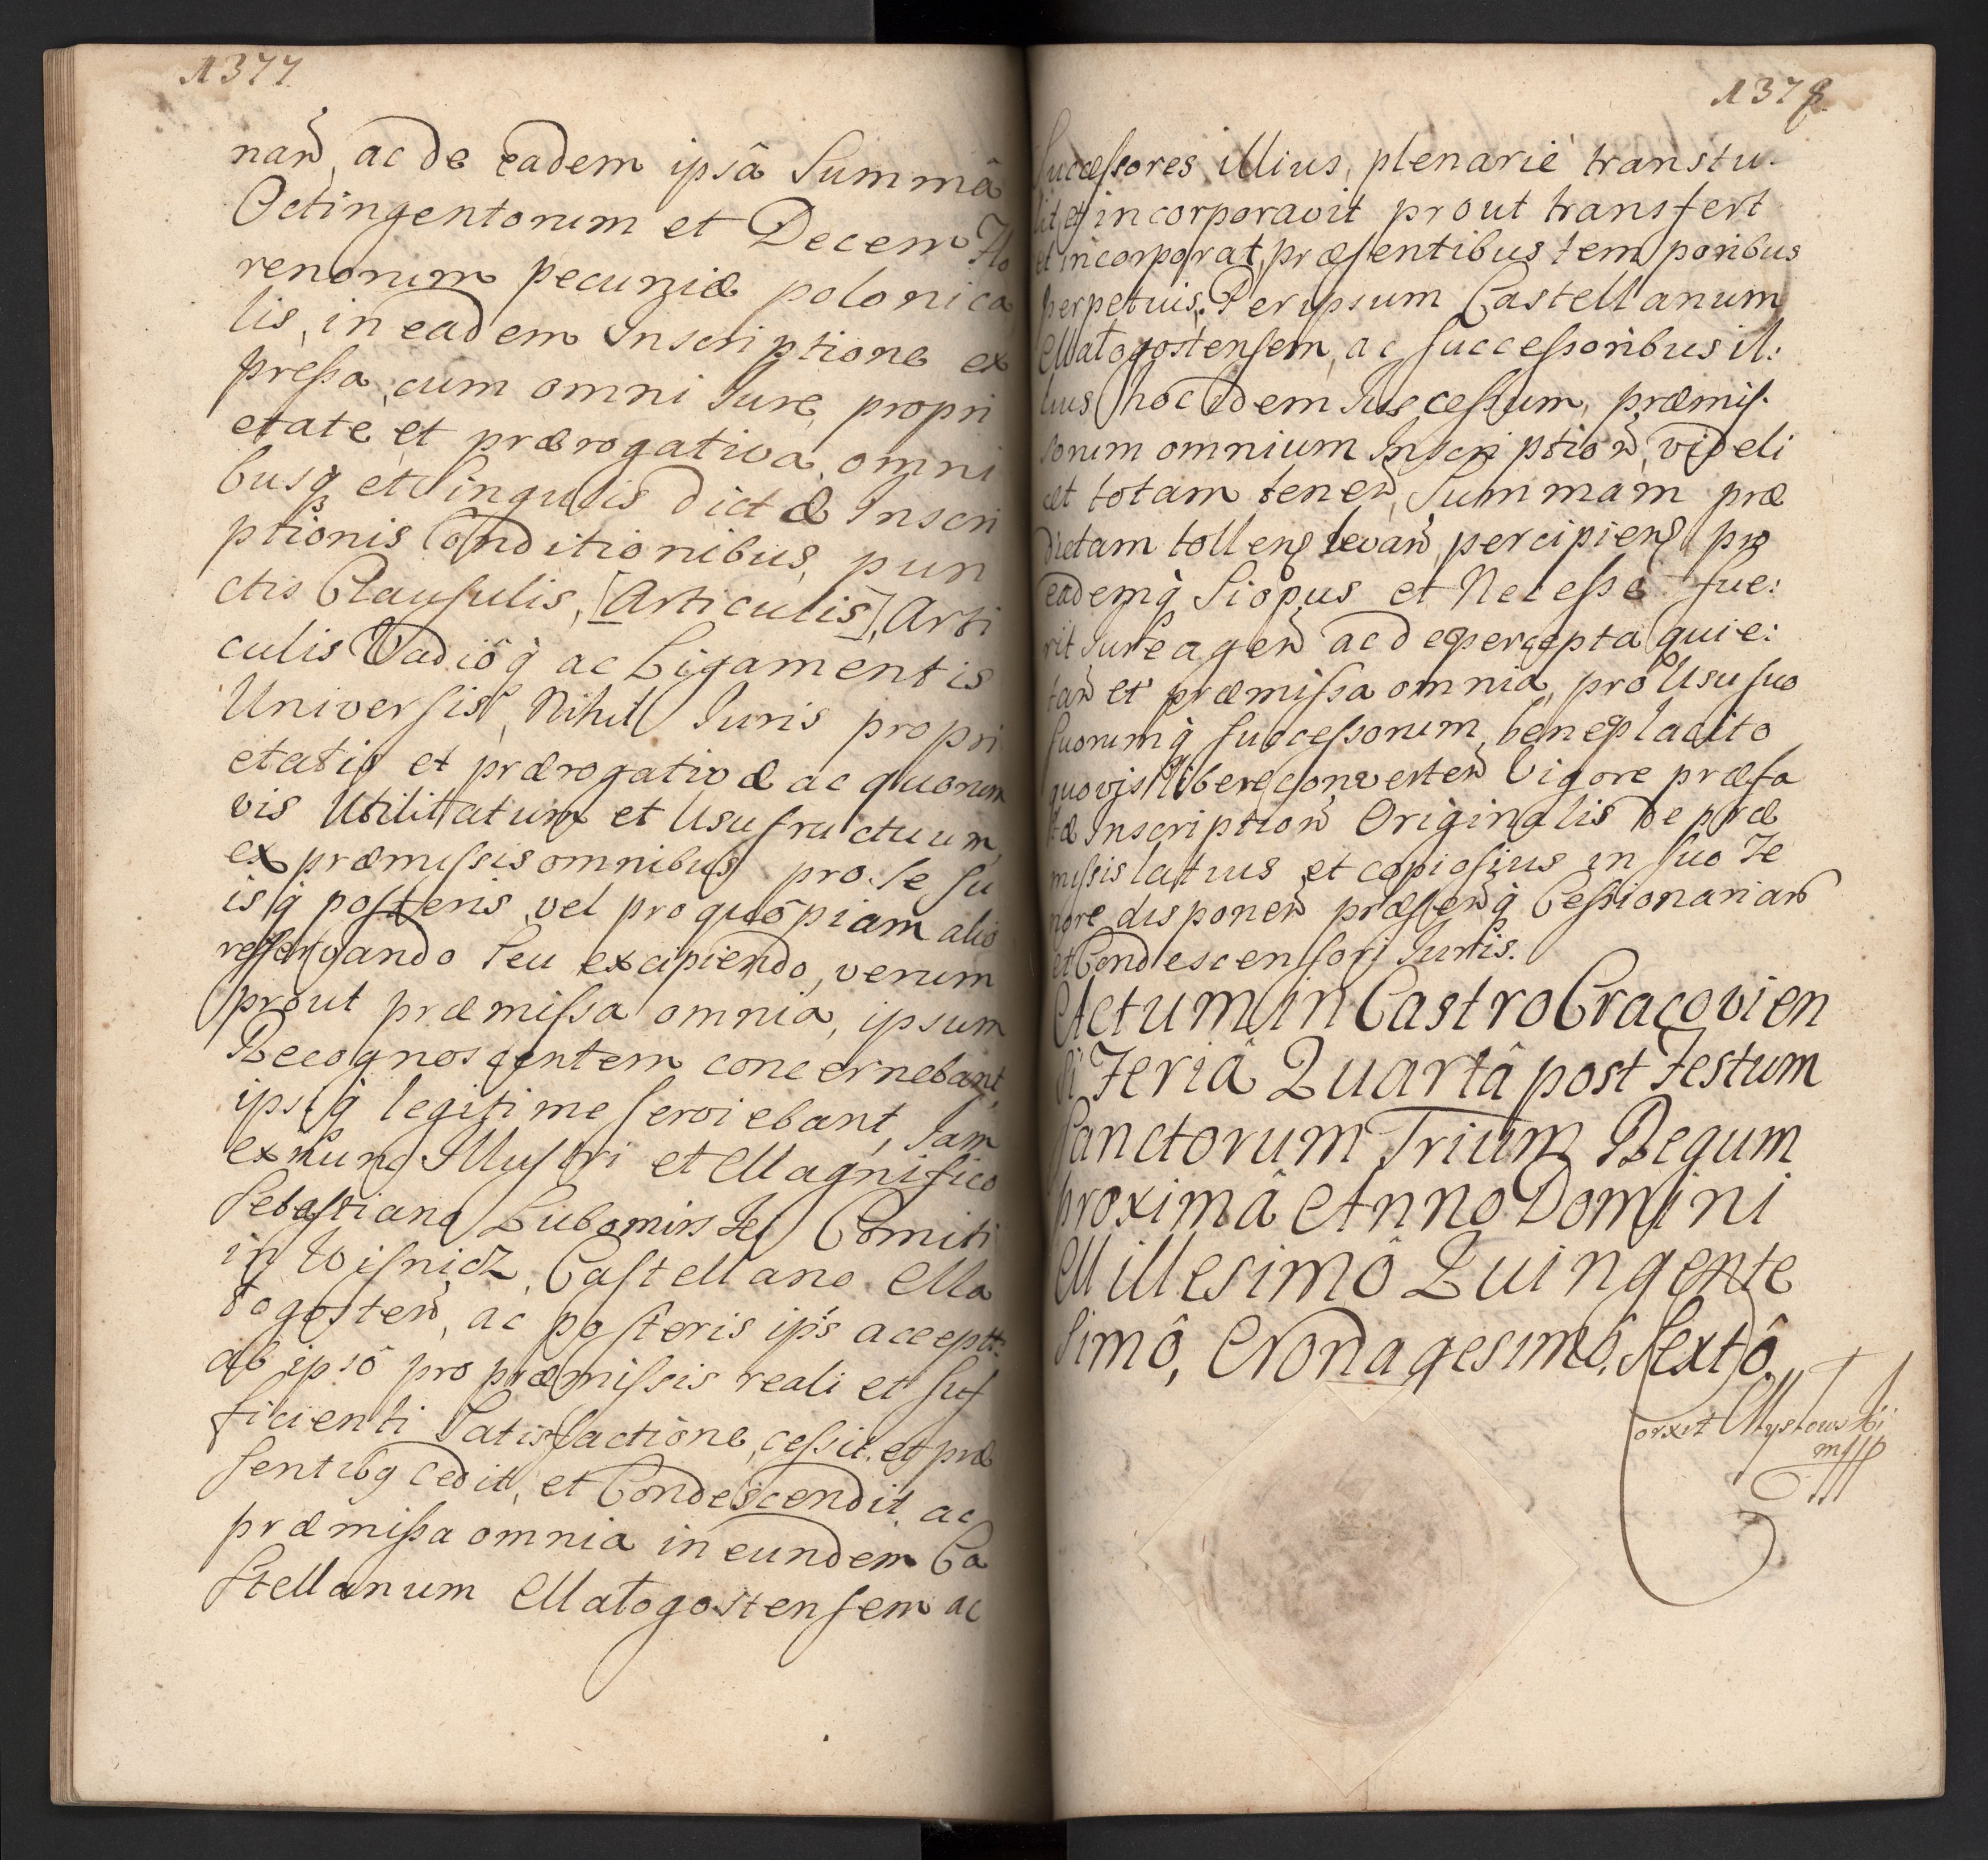 1377
nan̄, ac de eadem ipsâ Summâ
Octingentorum et Decem Flo
renorum pecuniæ polonica
lis, in eadem Inscriptione ex
preſsa, cum omni Iure, propri
etate, et prærogativa, omni
busq́ et Singulis dictæ Inscri
ptionis Conditionibus, pun
ctis Clauſulis, [Articulis], Arti
culis Vadiôq̀ ac Ligamentis
Univerſis, Nihil Iuris propri
etatis et prærogativæ ac quorum
vis Utilitatum et Usufructuum,
ex præmiſsis omnibus, pro Se ſu
isq̀ poſteris, vel pro quôpiam alio
reſervando Seu excipiendo, verum
prout præmiſsa omnia, ipsum
Recognoscentem concernebant,
ipsiq̀ legitime ſerviebant, Iam
ex nunc Illuſtri et Magnifico
Sebaſtiano Lubomirski Comiti
in Wiſnicz, Caſtellano Ma
togosten̄, ac poſteris ipś accept:
ab ipsô pro præmiſsis reali et ſuf
ficienti Satisfactione, ceſsit et præ
ſentibq cedit, et Condescendit, ac
præmiſsa omnia in eundem Ca
ſtellanum Matogostenſem ac
1378
Succeſsores illius, plenarie transtu-
lit, et incorporavit prout transfert
et incorporat, præſentibus temporibus
perpetuis. Per ipsum Castellanum
Matogostenſem, ac ſucceſsoribus il:
lius hoc idem Ius ceſsum, præmiſ-
sorum omnium Inscription̄, videli
cet totam tenen̄, Summam præ
dictam tollen̄ levan̄, percipien̄ pro
eademq̀ Si opus et Neceſse fue:
rit Iure agen̄ ac de percepta quie:
tan̄ et præmiſsa omnia, pro Usu ſuo
ſuorumq̀ ſucceſsorum, beneplacito
quovis libere converten̄ Vigore præfa
tæ Inscription̄ Originalis de præ
miſsis latius et copioſius in ſuo Te
nore disponen̄ præſen̄q̀ Ceſsionarian̄
et Condescenſorj Iuris.
Actum in Castro Cracovien
ſi Feriâ Quartâ post Festum
Sanctorum Trium Regum
proximâ Anno Domini
Millesimô Quingente
simô, Nonagesimô, Sextô.
Corxit Mystowski
mpp